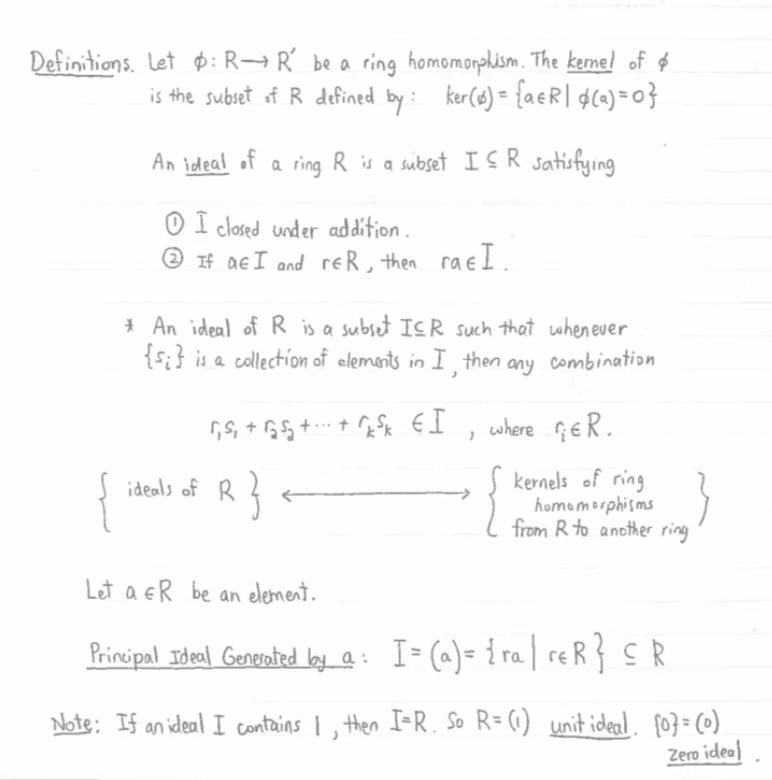 Definitions. Let φ: R → R′ be a ring homomorphism. The kernel of φ
is the subset of R defined by: ker(φ) = {a∈R | φ(a)=0}
An ideal of a ring R is a subset I ⊆ R satisfying
① I closed under addition.
② If a∈I and r∈R, then ra∈I.
* An ideal of R is a subset I⊆R such that whenever
{sᵢ} is a collection of elements in I, then any combination
r₁s₁ + r₂s₂ + ··· + rₖsₖ ∈ I, where rᵢ∈R.
{ideals of R} ⟷ {kernels of ring
homomorphisms
from R to another ring}
Let a∈R be an element.
Principal Ideal Generated by a: I = (a) = {ra | r∈R} ⊆ R
Note: If an ideal I contains 1, then I=R. So R=(1) unit ideal. {0}=(0)
Zero ideal.